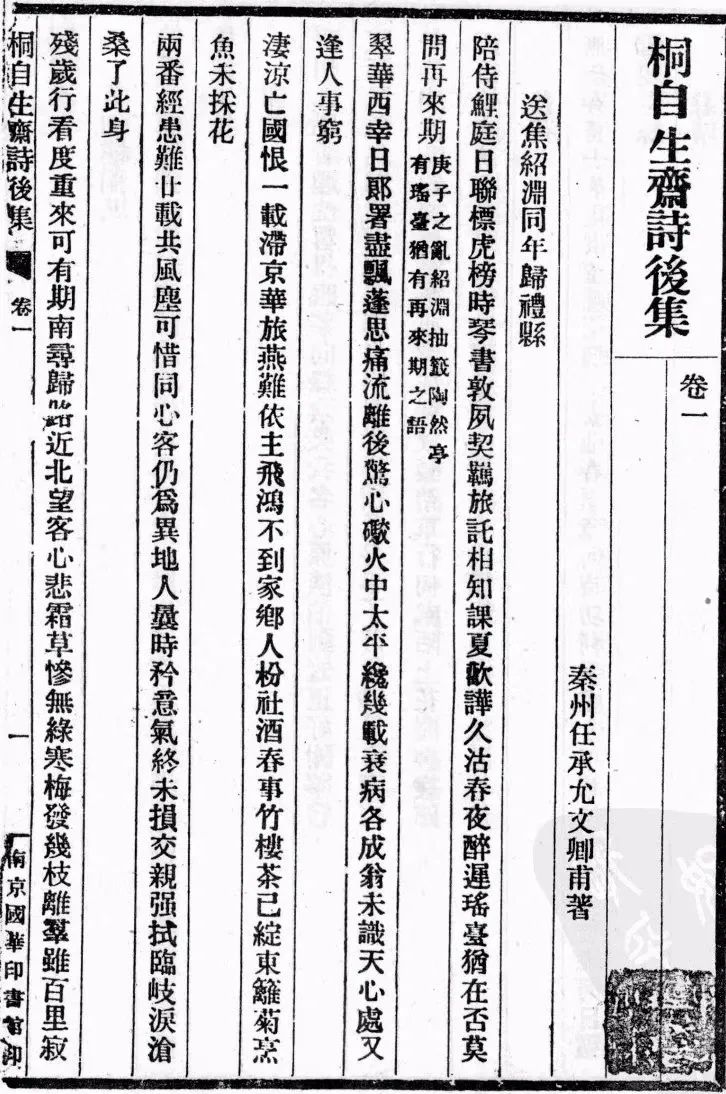 桐自生齋詩後集
卷一
秦州任承允文卿甫著
送焦紹淵同年歸禮縣
陪侍鯉庭日聯標虎榜時琴書敦夙契羈旅託相知課夏歡譁久沽春夜醉遲瑤臺猶在否莫
問再來期庚子之亂紹淵抽籤陶然亭
有瑤臺猶有再來期之語
翠華西幸日郎署盡飄蓬思痛流離後驚心礮火中太平纔幾載衰病各成翁未識天心處又
逢人事窮
淒涼亡國恨一載滯京華旅燕難依主飛鴻不到家鄉人枌社酒春事竹樓茶已綻東籬菊烹
魚未採花
兩番經患難廿載共風塵可惜同心客仍爲異地人曩時矜意氣終未損交親强拭臨岐淚滄
桑了此身
殘歲行看度重來可有期南尋歸路近北望客心悲霜草慘無綠寒梅發幾枝離羣雖百里寂
桐自生齋詩後集
卷一
一
南京國華印書館印